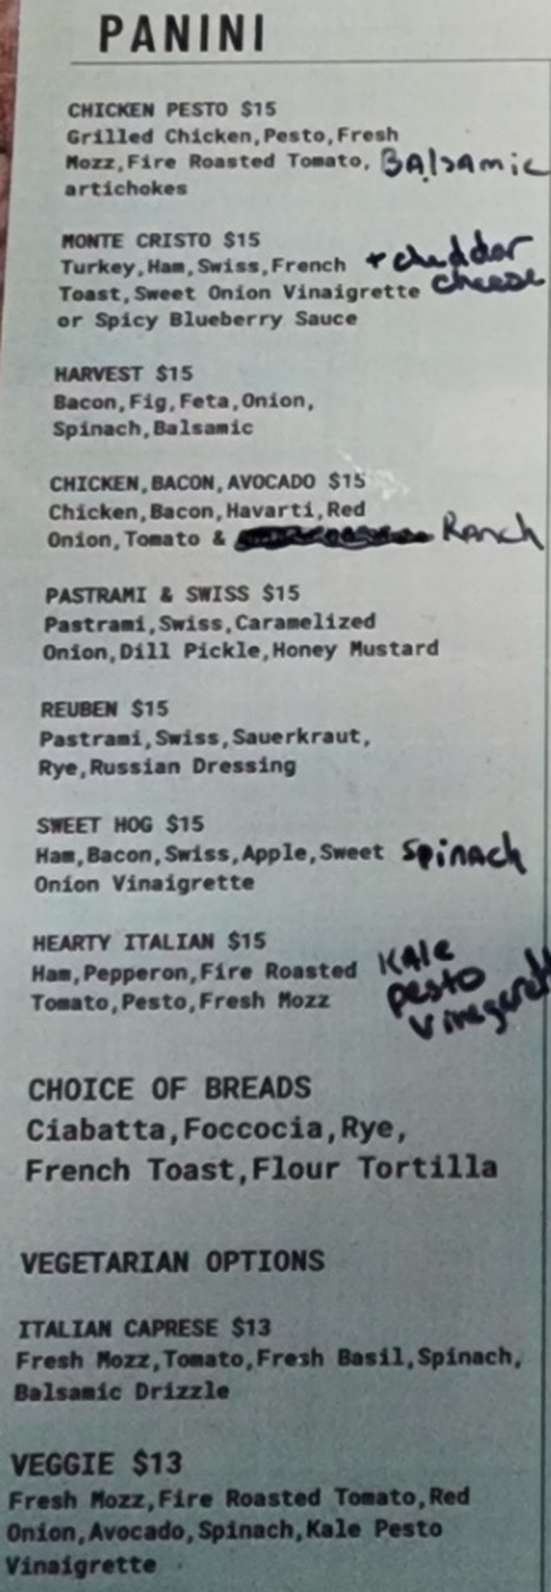 PANINI
CHICKEN PESTO $15
Grilled Chicken,Pesto,Fresh
Mozz,Fire Roasted Tomato, BAlsamic
artichokes
MONTE CRISTO $15
Turkey,Ham,Swiss,French + cheddar
Toast,Sweet Onion Vinaigrette cheese
or Spicy Blueberry Sauce
HARVEST $15
Bacon,Fig,Feta,Onion,
Spinach,Balsamic
CHICKEN,BACON,AVOCADO $15
Chicken,Bacon,Havarti,Red
Onion,Tomato & Ranch
PASTRAMI & SWISS $15
Pastrami,Swiss,Caramelized
Onion,Dill Pickle,Honey Mustard
REUBEN $15
Pastrami,Swiss,Sauerkraut,
Rye,Russian Dressing
SWEET HOG $15
Ham,Bacon,Swiss,Apple,Sweet Spinach
Onion Vinaigrette
HEARTY ITALIAN $15
Ham,Pepperon,Fire Roasted KAle
Tomato,Pesto,Fresh Mozz pesto
CHOICE OF BREADS
Ciabatta,Foccocia,Rye,
French Toast,Flour Tortilla
VEGETARIAN OPTIONS
ITALIAN CAPRESE $13
Fresh Mozz,Tomato,Fresh Basil,Spinach,
Balsamic Drizzle
VEGGIE $13
Fresh Mozz,Fire Roasted Tomato,Red
Onion,Avocado,Spinach,Kale Pesto
Vinaigrette